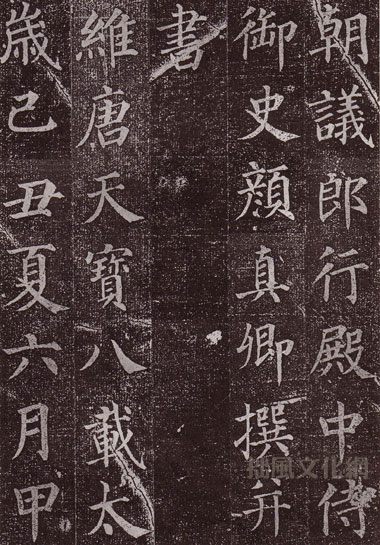 朝議郎行殿中侍
御史顔真卿撰并
書
維唐天寶八載太
歳己丑夏六月甲
風文化網